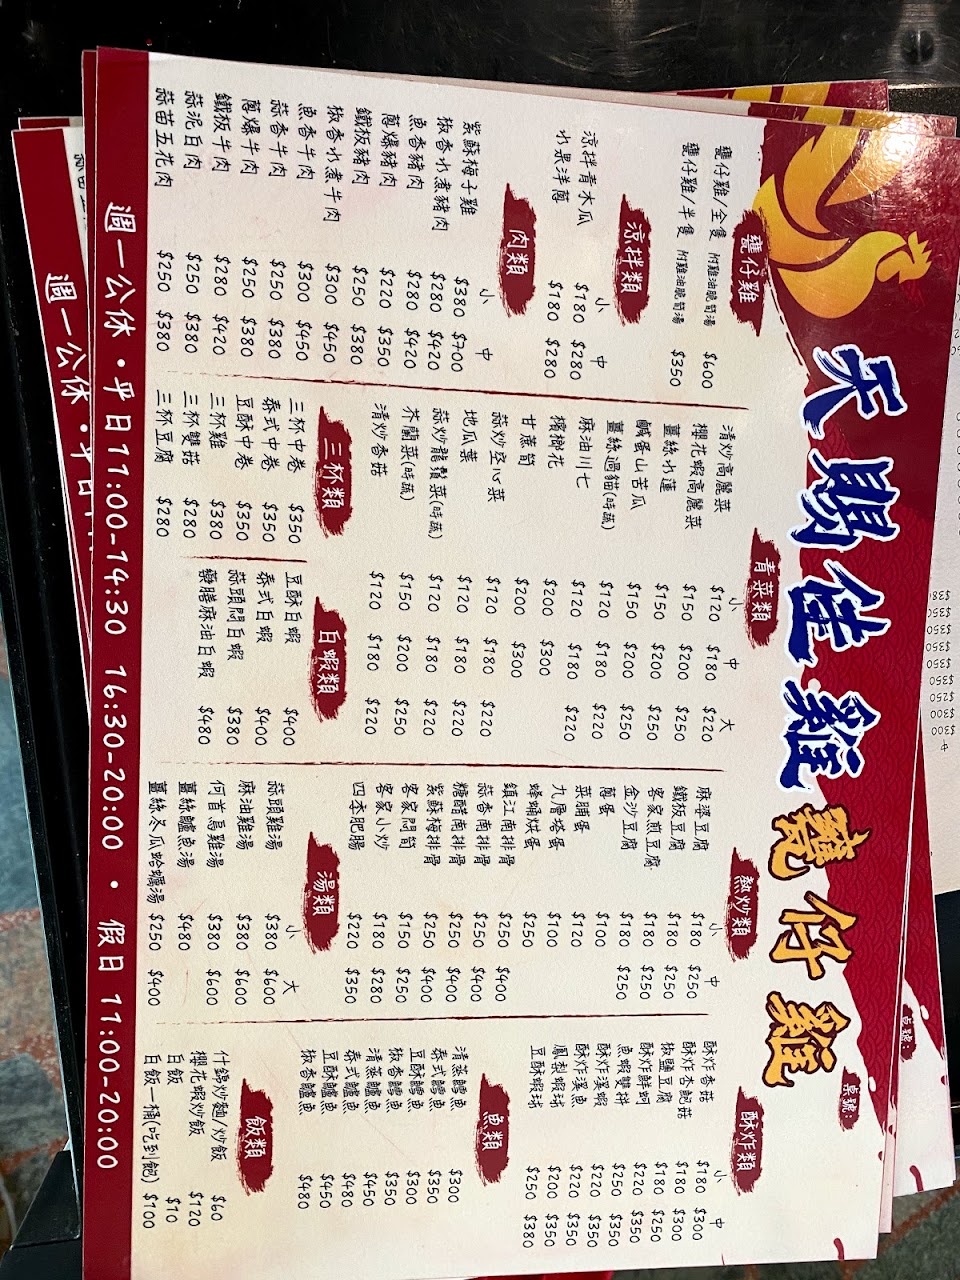 天賜佳雞 甕仔雞
桌號:
甕仔雞
甕仔雞/全隻 附雞油脆筍湯 $600
甕仔雞/半隻 附雞油脆筍湯 $350
涼拌類
小 中
涼拌青木瓜 $180 $280
水果洋蔥 $180 $280
肉類
小 中
紫蘇梅子雞 $380 $700
椒香水煮豬肉 $280 $420
魚香豬肉 $280 $420
蔥爆豬肉 $220 $350
鐵板豬肉 $250 $380
椒香水煮牛肉 $300 $450
魚香牛肉 $300 $450
蒜香牛肉 $250 $380
蔥爆牛肉 $250 $380
鐵板牛肉 $280 $420
蒜泥白肉 $250 $380
蒜苗五花肉 $250 $380
青菜類
小 中 大
清炒高麗菜 $120 $180 $220
櫻花蝦高麗菜 $150 $200 $250
薑絲水蓮 $150 $200 $250
鹹蛋山苦瓜 $150 $200 $250
薑絲過貓(時蔬) $120 $180 $220
麻油川七 $120 $180 $220
檳榔花 $200 $300
甘蔗筍 $200 $300
蒜炒空心菜 $120 $180 $220
地瓜葉 $120 $180 $220
蒜炒龍鬚菜(時蔬) $120 $180 $220
芥蘭菜(時蔬) $150 $200 $250
清炒香菇 $120 $180 $220
三杯類
三杯中卷 $350
泰式中卷 $350
豆酥中卷 $350
三杯雞 $380
三杯雙菇 $280
三杯豆腐 $280
白蝦類
豆酥白蝦 $400
泰式白蝦 $400
蒜頭悶白蝦 $380
藥膳麻油白蝦 $480
熱炒類
小 中
麻婆豆腐 $180 $250
鐵板豆腐 $180 $250
客家煎豆腐 $180 $250
金沙豆腐 $180 $250
蔥蛋 $100
菜脯蛋 $120
九層塔蛋 $100
蜂蛹烘蛋 $250
鎮江南排骨 $250 $400
蒜香南排骨 $250 $400
糖醋南排骨 $250 $400
紫蘇梅排骨 $250 $400
客家悶筍 $150 $250
客家小炒 $180 $280
四季肥腸 $220 $350
湯類
小 大
蒜頭雞湯 $380 $600
麻油雞湯 $380 $600
何首烏雞湯 $380 $600
薑絲鱸魚湯 $480
薑絲冬瓜蛤蠣湯 $250 $400
酥炸類
小 中
酥炸香菇 $180 $300
酥炸杏鮑菇 $180 $300
椒鹽豆腐 $180 $250
酥炸鮮蚵 $220 $350
魚蝦雙拼 $250 $350
酥炸溪蝦 $220 $350
酥炸溪魚 $220 $350
鳳梨蝦球 $200 $350
豆酥蝦球 $250 $380
魚類
清蒸鱈魚 $300
泰式鱈魚 $350
豆酥鱈魚 $300
椒香鱈魚 $350
清蒸鱸魚 $450
泰式鱸魚 $480
豆酥鱸魚 $450
椒香鱸魚 $480
飯類
什錦炒麵/炒飯 $60
櫻花蝦炒飯 $120
白飯 $10
白飯一桶(吃到飽) $100
週一公休・平日11:00-14:30 16:30-20:00 ・ 假日 11:00-20:00
週一公休・平日
桌號: